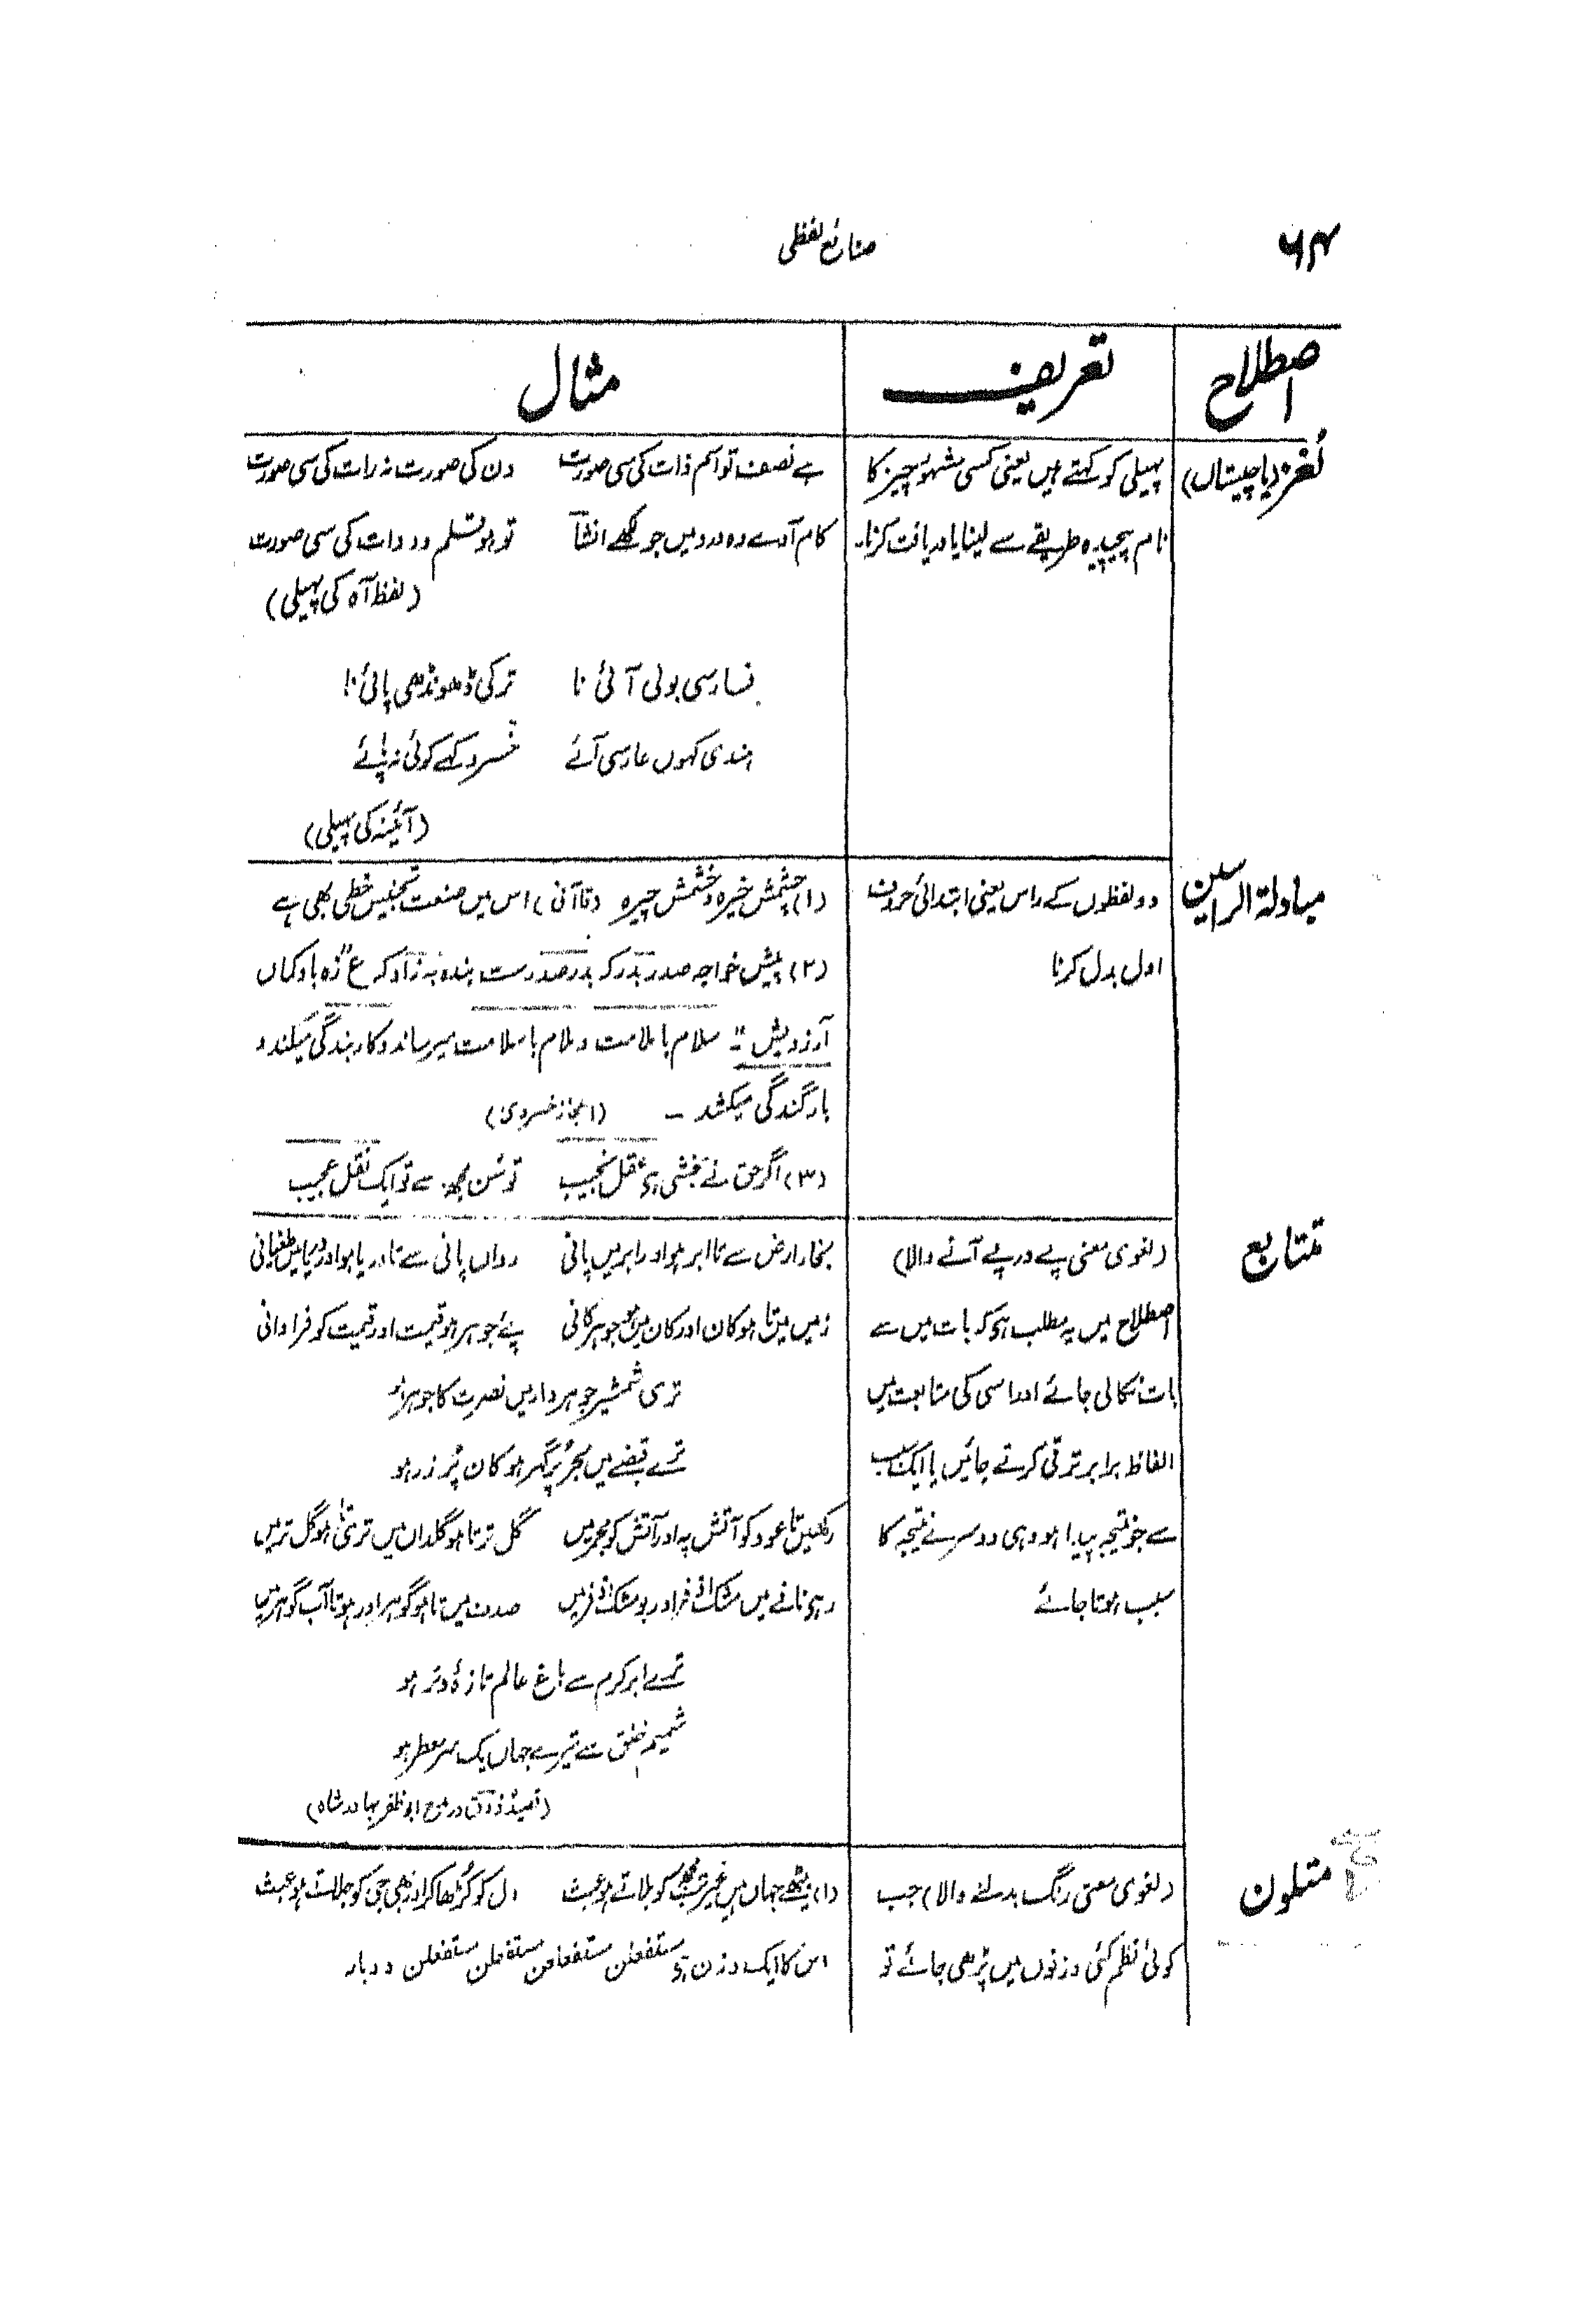 ۶۴
صنائع لفظی
اصطلاح
تعریف
مثال
لُغز (یا چیستاں)
پہیلی کو کہتے ہیں یعنی کسی مشہور چیز کا
نام پیچیدہ طریقے سے لینا یا دریافت کرنا۔
ہے نصف تو اسم ذات کی سی صورت دن کی صورت نہ رات کی سی صورت
کام آوے وہ درد میں جو لکھے انشآ تو ہو قلم دوات کی سی صورت
(لفظ آہ کی پہیلی)
فارسی بولی آئی نا ترکی ڈھونڈھی پائی نا
ہندی کہوں عارسی آئے خسرو کہے کوئی نہ پائے
(آئینہ کی پہیلی)
مبادلۃ الراسین
دو لفظوں کے راس یعنی ابتدائی حروف
ادل بدل کرنا
(۱) چشمش خیرہ و خشمش چیرہ (قاآنی) اس میں صنعت تجنیس خطی بھی ہے
(۲) پیش خواجہ صدر بدر کہ بدر صدرست بندہ بہ زاد کہ ع "زہ باد کماں
آرزویش" سلام با ملامت و ملام با سلامت میرساند و کار بندگی میکند و
بار گندگی میکشد ۔ (اعجاز خسروی)
(۳) اگر حق نے بخشی ہے عقل نجیب تو سُن مجھ سے تو ایک نقل عجیب
متتابع
(لغوی معنی پے در پے آنے والا)
اصطلاح میں یہ مطلب ہے کہ بات میں سے
بات نکالی جائے اور اسی کی متابعت میں
الفاظ برابر ترقی کرتے جائیں یا ایک سبب
سے جو نتیجہ پیدا ہو وہی دوسرے نتیجہ کا
سبب ہوتا جائے
بخار ارض سے تا ابر ہو اور ابر میں پانی رواں پانی سے تا دریا ہو اور دریا میں طغیانی
زمیں میں تا ہو کان اور کان میں ہو جوہر کانی پئے جوہر ہو قیمت اور قیمت کو فراوانی
تری شمشیر جوہر دار میں نصرت کا جوہر ہو
ترے قبضے میں بحر پُر گہر ہو کان پُر زر ہو
رکھیں تا عود کو آتش پہ اور آتش کو مجمر میں گل تر تا ہو گلداں میں تری تا ہو گل تر میں
رہے نافے میں مشک اذفر اور بو مشک اذفر میں صدف میں تا ہو گوہر اور ہو تا آب گوہر میں
ترے ابر کرم سے باغ عالم تازہ و تر ہو
شمیم خلق سے تیرے جہاں یک سر معطر ہو
(قصیدۂ ذوق در مدح ابو ظفر بہادر شاہ)
متلون
(لغوی معنی رنگ بدلنے والا) جب
کوئی نظم کئی وزنوں میں پڑھی جائے تو
(۱) بیٹھے جہاں ہیں غیر تب مجھ کو بلاتے ہو عبث دل کو کُڑھا کر اور بھی جی کو جلاتے ہو عبث
اس کا ایک وزن ہے مستفعلن مستفعلن مستفعلن مستفعلن دوبار